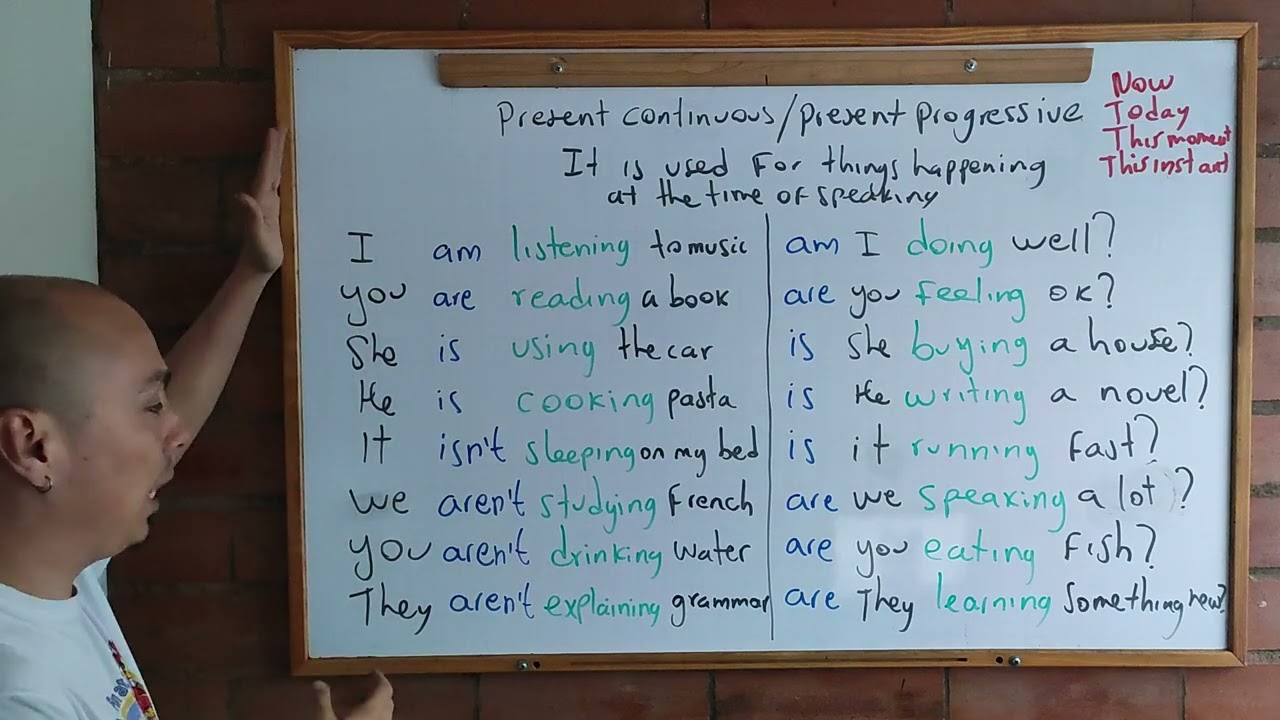 Present continuous/present progressive
It is used for things happening
at the time of speaking
Now
Today
This moment
This instant
I am listening to music
you are reading a book
She is using the car
He is cooking pasta
It isn't sleeping on my bed
we aren't studying French
you aren't drinking water
They aren't explaining grammar
am I doing well?
are you feeling ok?
is she buying a house?
is He writing a novel?
is it running fast?
are we speaking a lot?
are you eating fish?
are They learning something new?